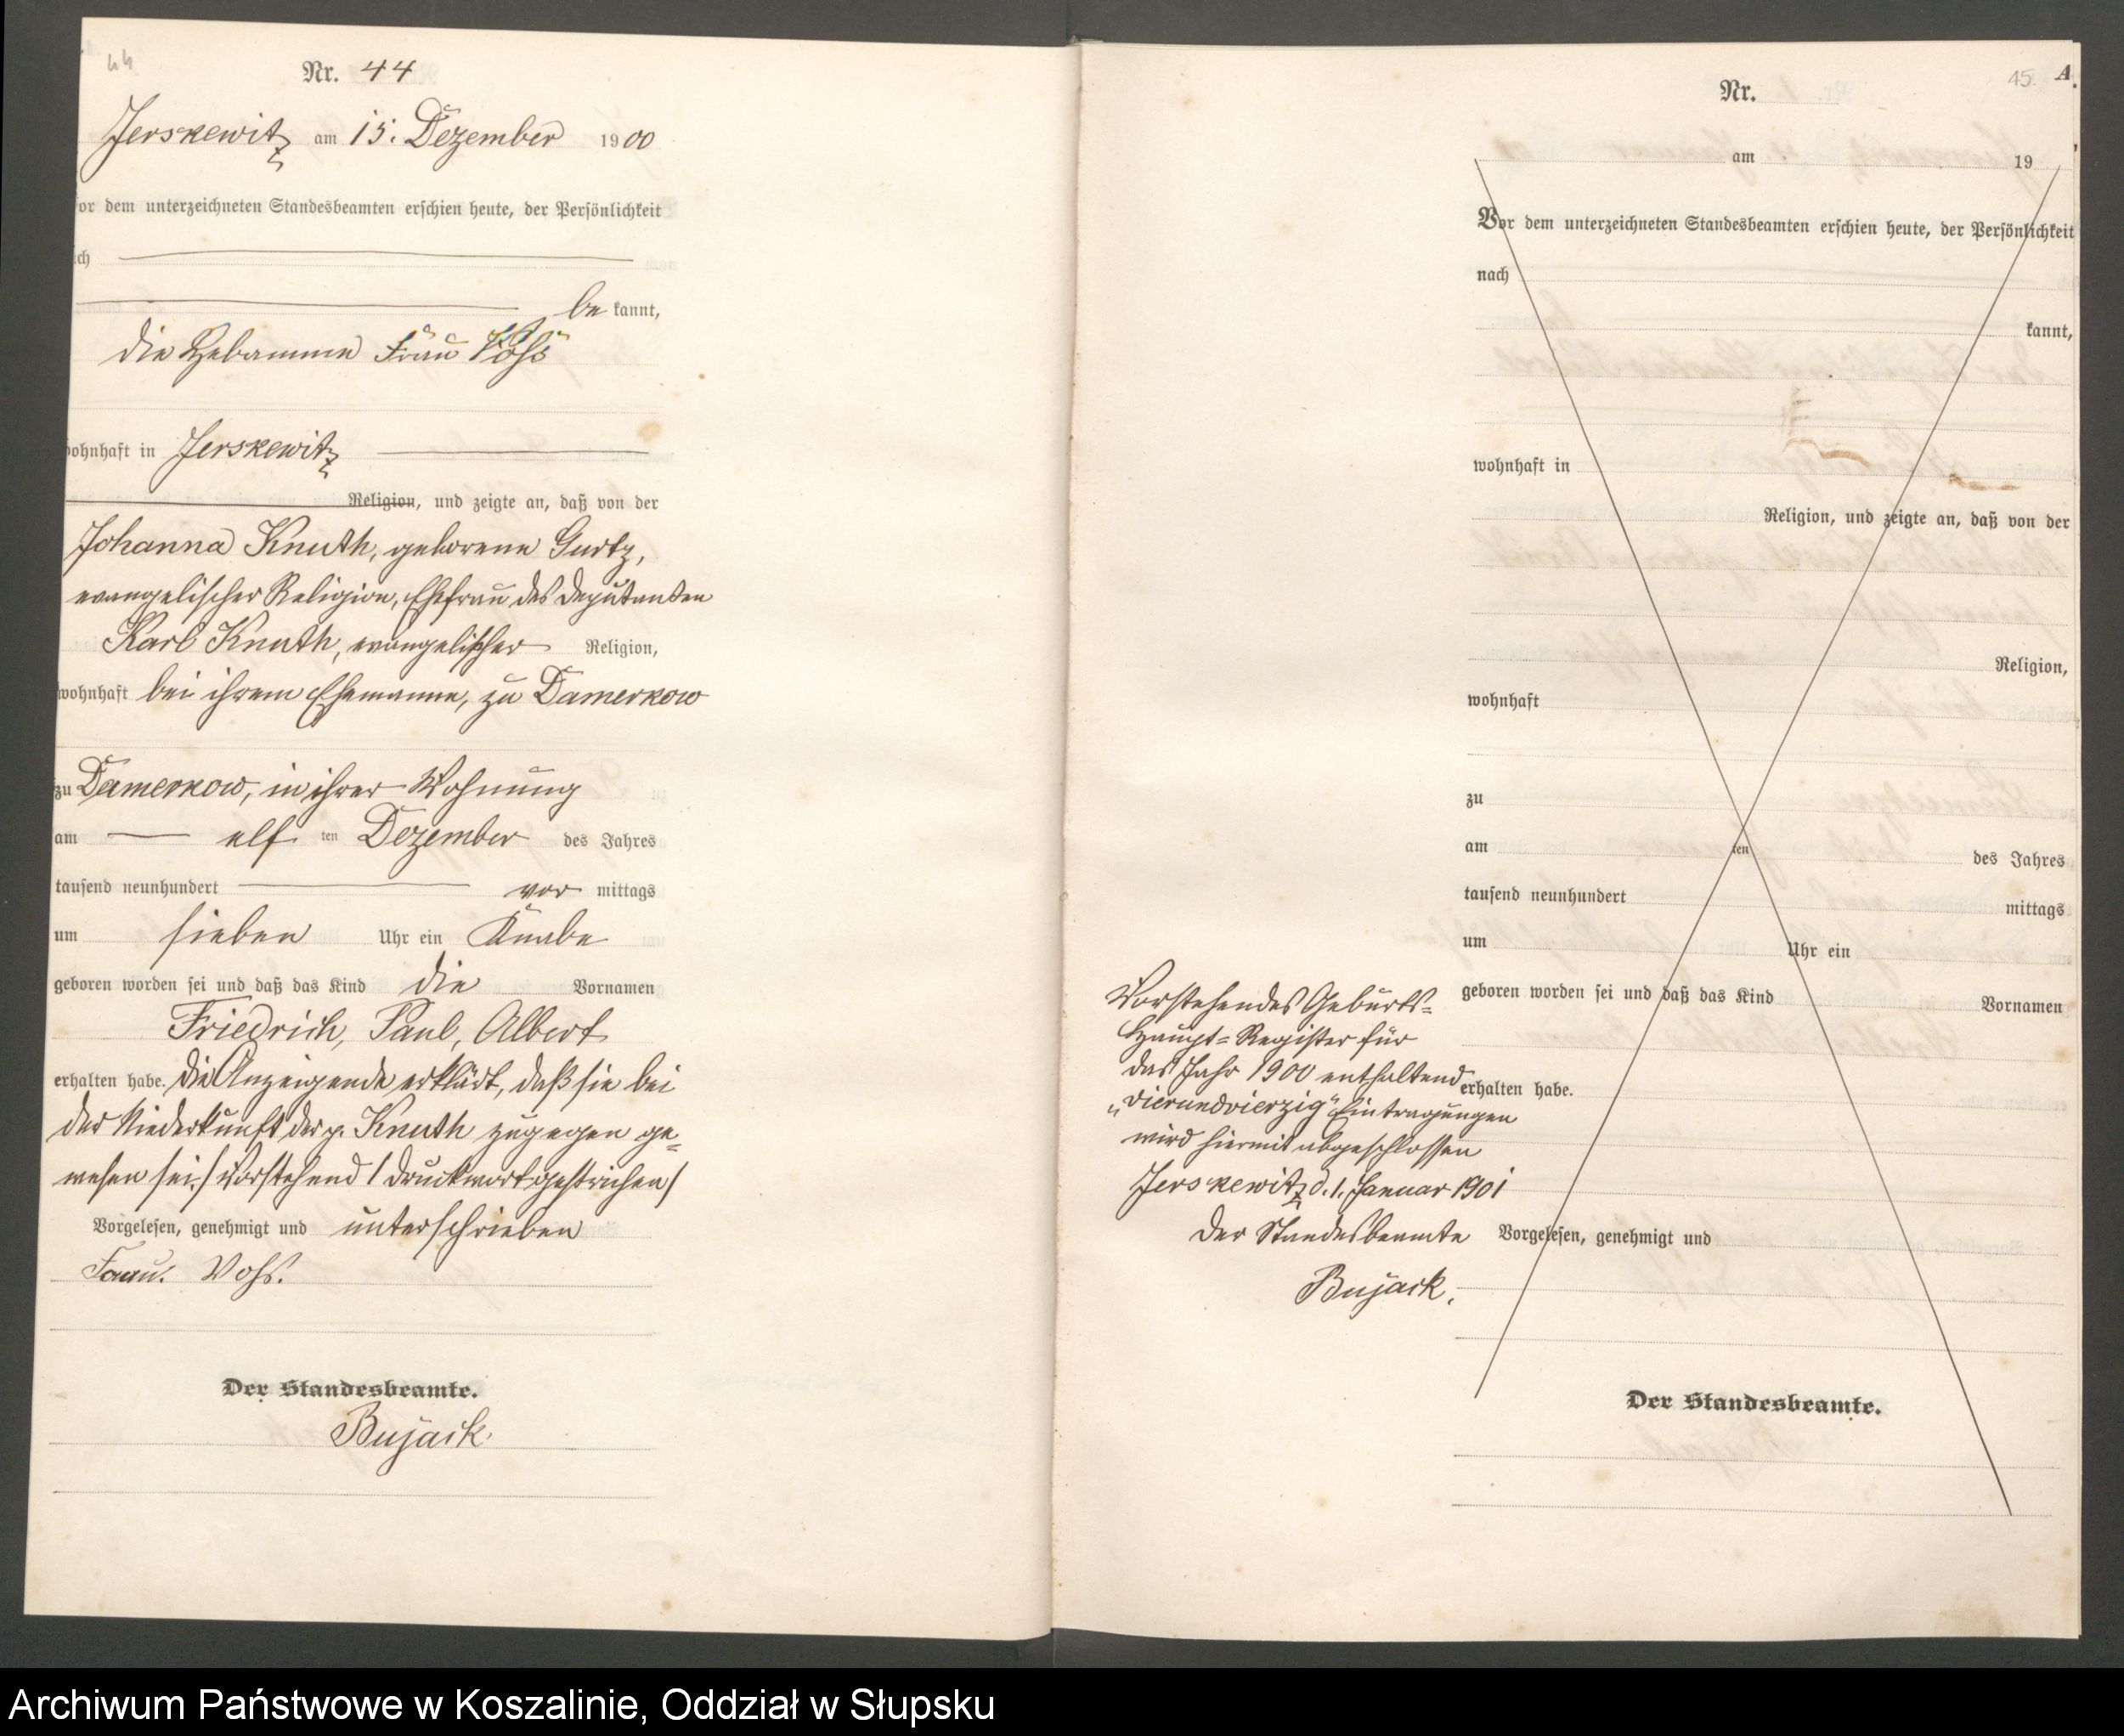 44
Nr. 44
Jerskewitz am 15. Dezember 1900
or dem unterzeichneten Standesbeamten erschien heute, der Persönlichkeit
ch
be kannt,
die Hebamme Frau Voß
ohnhaft in Jerskewitz
Religion, und zeigte an, daß von der
Johanna Knuth, geborene Gurtz,
evangelischer Religion, Ehefrau des Deputanten
Karl Knuth, evangelischer Religion,
wohnhaft bei ihrem Ehemanne, zu Damerkow
zu Damerkow, in ihrer Wohnung
am elf ten Dezember des Jahres
tausend neunhundert vor mittags
um sieben Uhr ein Knabe
geboren worden sei und daß das Kind die Vornamen
Friedrich, Paul, Albert
erhalten habe. Die Anzeigende erklärt, daß sie bei
der Niederkunft der p. Knuth zugegen ge=
wesen sei. / Vorstehend 1 Druckwort gestrichen /
Vorgelesen, genehmigt und unterschrieben
Frau. Voß.
Der Standesbeamte.
Bujack.
45 A.
Nr.
am 19
Vor dem unterzeichneten Standesbeamten erschien heute, der Persönlichkeit
nach
kannt,
wohnhaft in
Religion, und zeigte an, daß von der
Religion,
wohnhaft
zu
am ten des Jahres
tausend neunhundert mittags
um Uhr ein
geboren worden sei und daß das Kind Vornamen
erhalten habe.
Vorstehendes Geburts=
Haupt=Register für
das Jahr 1900 enthaltend
„vierundvierzig“ Eintragungen
wird hiermit abgeschlossen
Jerskewitz d. 1. Januar 1901
Der Standesbeamte
Bujack.
Vorgelesen, genehmigt und
Der Standesbeamte.
Archiwum Państwowe w Koszalinie, Oddział w Słupsku